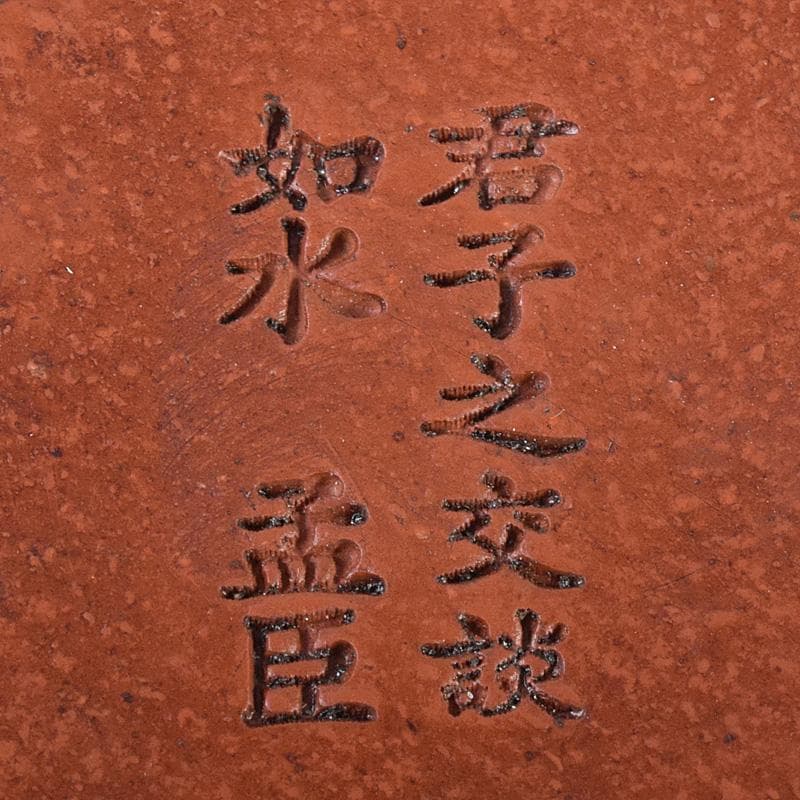 君子之交談
如水 孟臣